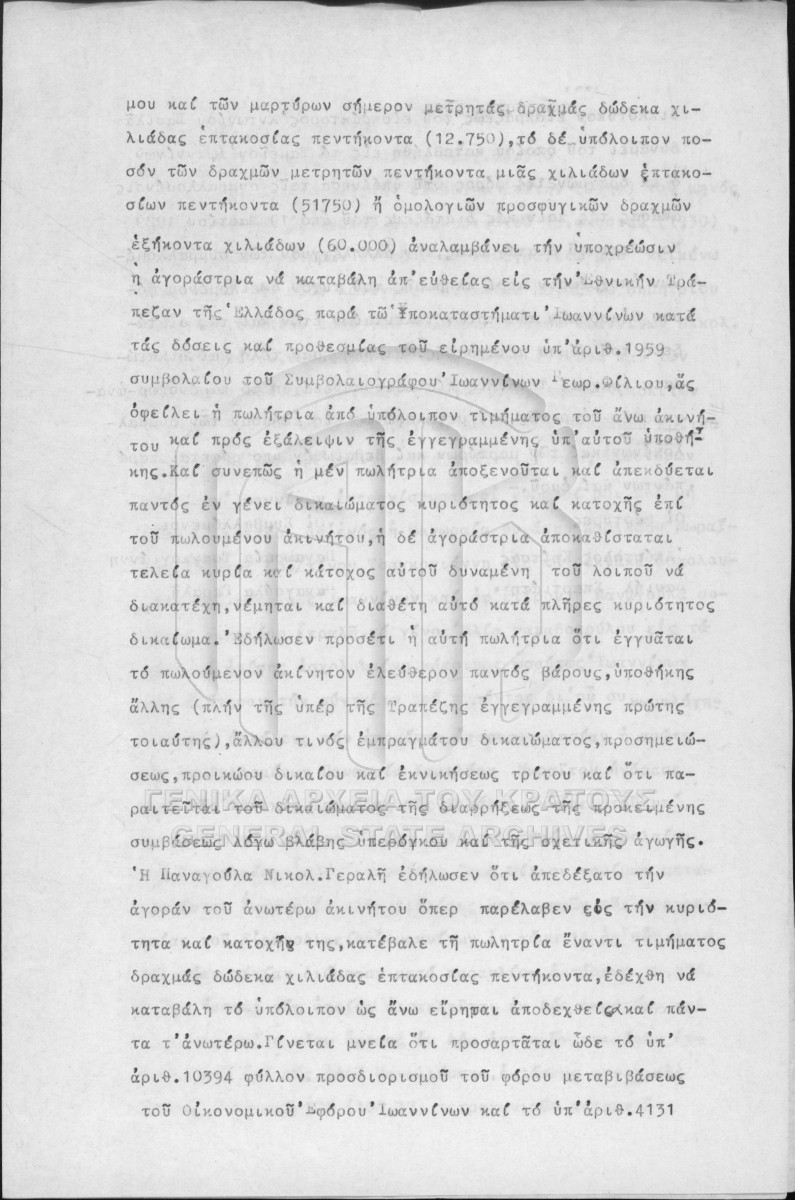 μου καί τῶν μαρτύρων σήμερον μετρητάς δραχμάς δώδεκα χι-
λιάδας ἑπτακοσίας πεντήκοντα (12.750),τό δέ ὑπόλοιπον πο-
σόν τῶν δραχμῶν μετρητῶν πεντήκοντα μιᾶς χιλιάδων ἑπτακο-
σίων πεντήκοντα (51750) ἤ ὁμολογιῶν προσφυγικῶν δραχμῶν
ἑξήκοντα χιλιάδων (60.000) ἀναλαμβάνει τήν ὑποχρέωσιν
ἡ ἀγοράστρια νά καταβάλη ἀπ'εὐθείας εἰς τήν Ἐθνικήν Τρά-
πεζαν τῆς Ἑλλάδος παρά τῶ Ὑποκαταστήματι Ἰωαννίνων κατά
τάς δόσεις καί προθεσμίας τοῦ εἰρημένου ὑπ'ἀριθ.1959
συμβολαίου τοῦ Συμβολαιογράφου Ἰωαννίνων Γεωρ.Φίλιου,ἅς
ὀφείλει ἡ πωλήτρια ἀπό ὑπόλοιπον τιμήματος τοῦ ἄνω ἀκινή-
του καί πρός ἐξάλειψιν τῆς ἐγγεγραμμένης ὑπ'αὐτοῦ ὑποθή-
κης.Καί συνεπῶς ἡ μέν πωλήτρια ἀποξενοῦται καί ἀπεκδύεται
παντός ἐν γένει δικαιώματος κυριότητος καί κατοχῆς ἐπί
τοῦ πωλουμένου ἀκινήτου,ἡ δέ ἀγοράστρια ἀποκαθίσταται
τελεία κυρία καί κάτοχος αὐτοῦ δυναμένη τοῦ λοιποῦ νά
διακατέχη,νέμηται καί διαθέτη αὐτό κατά πλῆρες κυριότητος
δικαίωμα.Ἐδήλωσεν προσέτι ἡ αὐτή πωλήτρια ὅτι ἐγγυᾶται
τό πωλούμενον ἀκίνητον ἐλεύθερον παντός βάρους,ὑποθήκης
ἄλλης (πλήν τῆς ὑπέρ τῆς Τραπέζης ἐγγεγραμμένης πρώτης
τοιαύτης),ἄλλου τινός ἐμπραγμάτου δικαιώματος,προσημειώ-
σεως,προικώου δικαίου καί ἐκνικήσεως τρίτου καί ὅτι πα-
ραιτεῖται τοῦ δικαιώματος τῆς διαρρήξεως τῆς προκειμένης
συμβάσεως λόγω βλάβης ὑπερόγκου καί τῆς σχετικῆς ἀγωγῆς.
Ἡ Παναγούλα Νικολ.Γεραλῆ ἐδήλωσεν ὅτι ἀπεδέξατο τήν
ἀγοράν τοῦ ἀνωτέρω ἀκινήτου ὅπερ παρέλαβεν εἰς τήν κυριό-
τητα καί κατοχήν της,κατέβαλε τῆ πωλητρία ἔναντι τιμήματος
δραχμάς δώδεκα χιλιάδας ἑπτακοσίας πεντήκοντα,ἐδέχθη νά
καταβάλη τό ὑπόλοιπον ὡς ἄνω εἴρηται ἀποδεχθεῖσα καί πάν-
τα τ'ἀνωτέρω.Γίνεται μνεία ὅτι προσαρτᾶται ὧδε τό ὑπ'
ἀριθ.10394 φύλλον προσδιορισμοῦ τοῦ φόρου μεταβιβάσεως
τοῦ Οἰκονομικοῦ Ἐφόρου Ἰωαννίνων καί τό ὑπ'ἀριθ.4131
ΓΕΝΙΚΑ ΑΡΧΕΙΑ ΤΟΥ ΚΡΑΤΟΥΣ
GENERAL STATE ARCHIVES